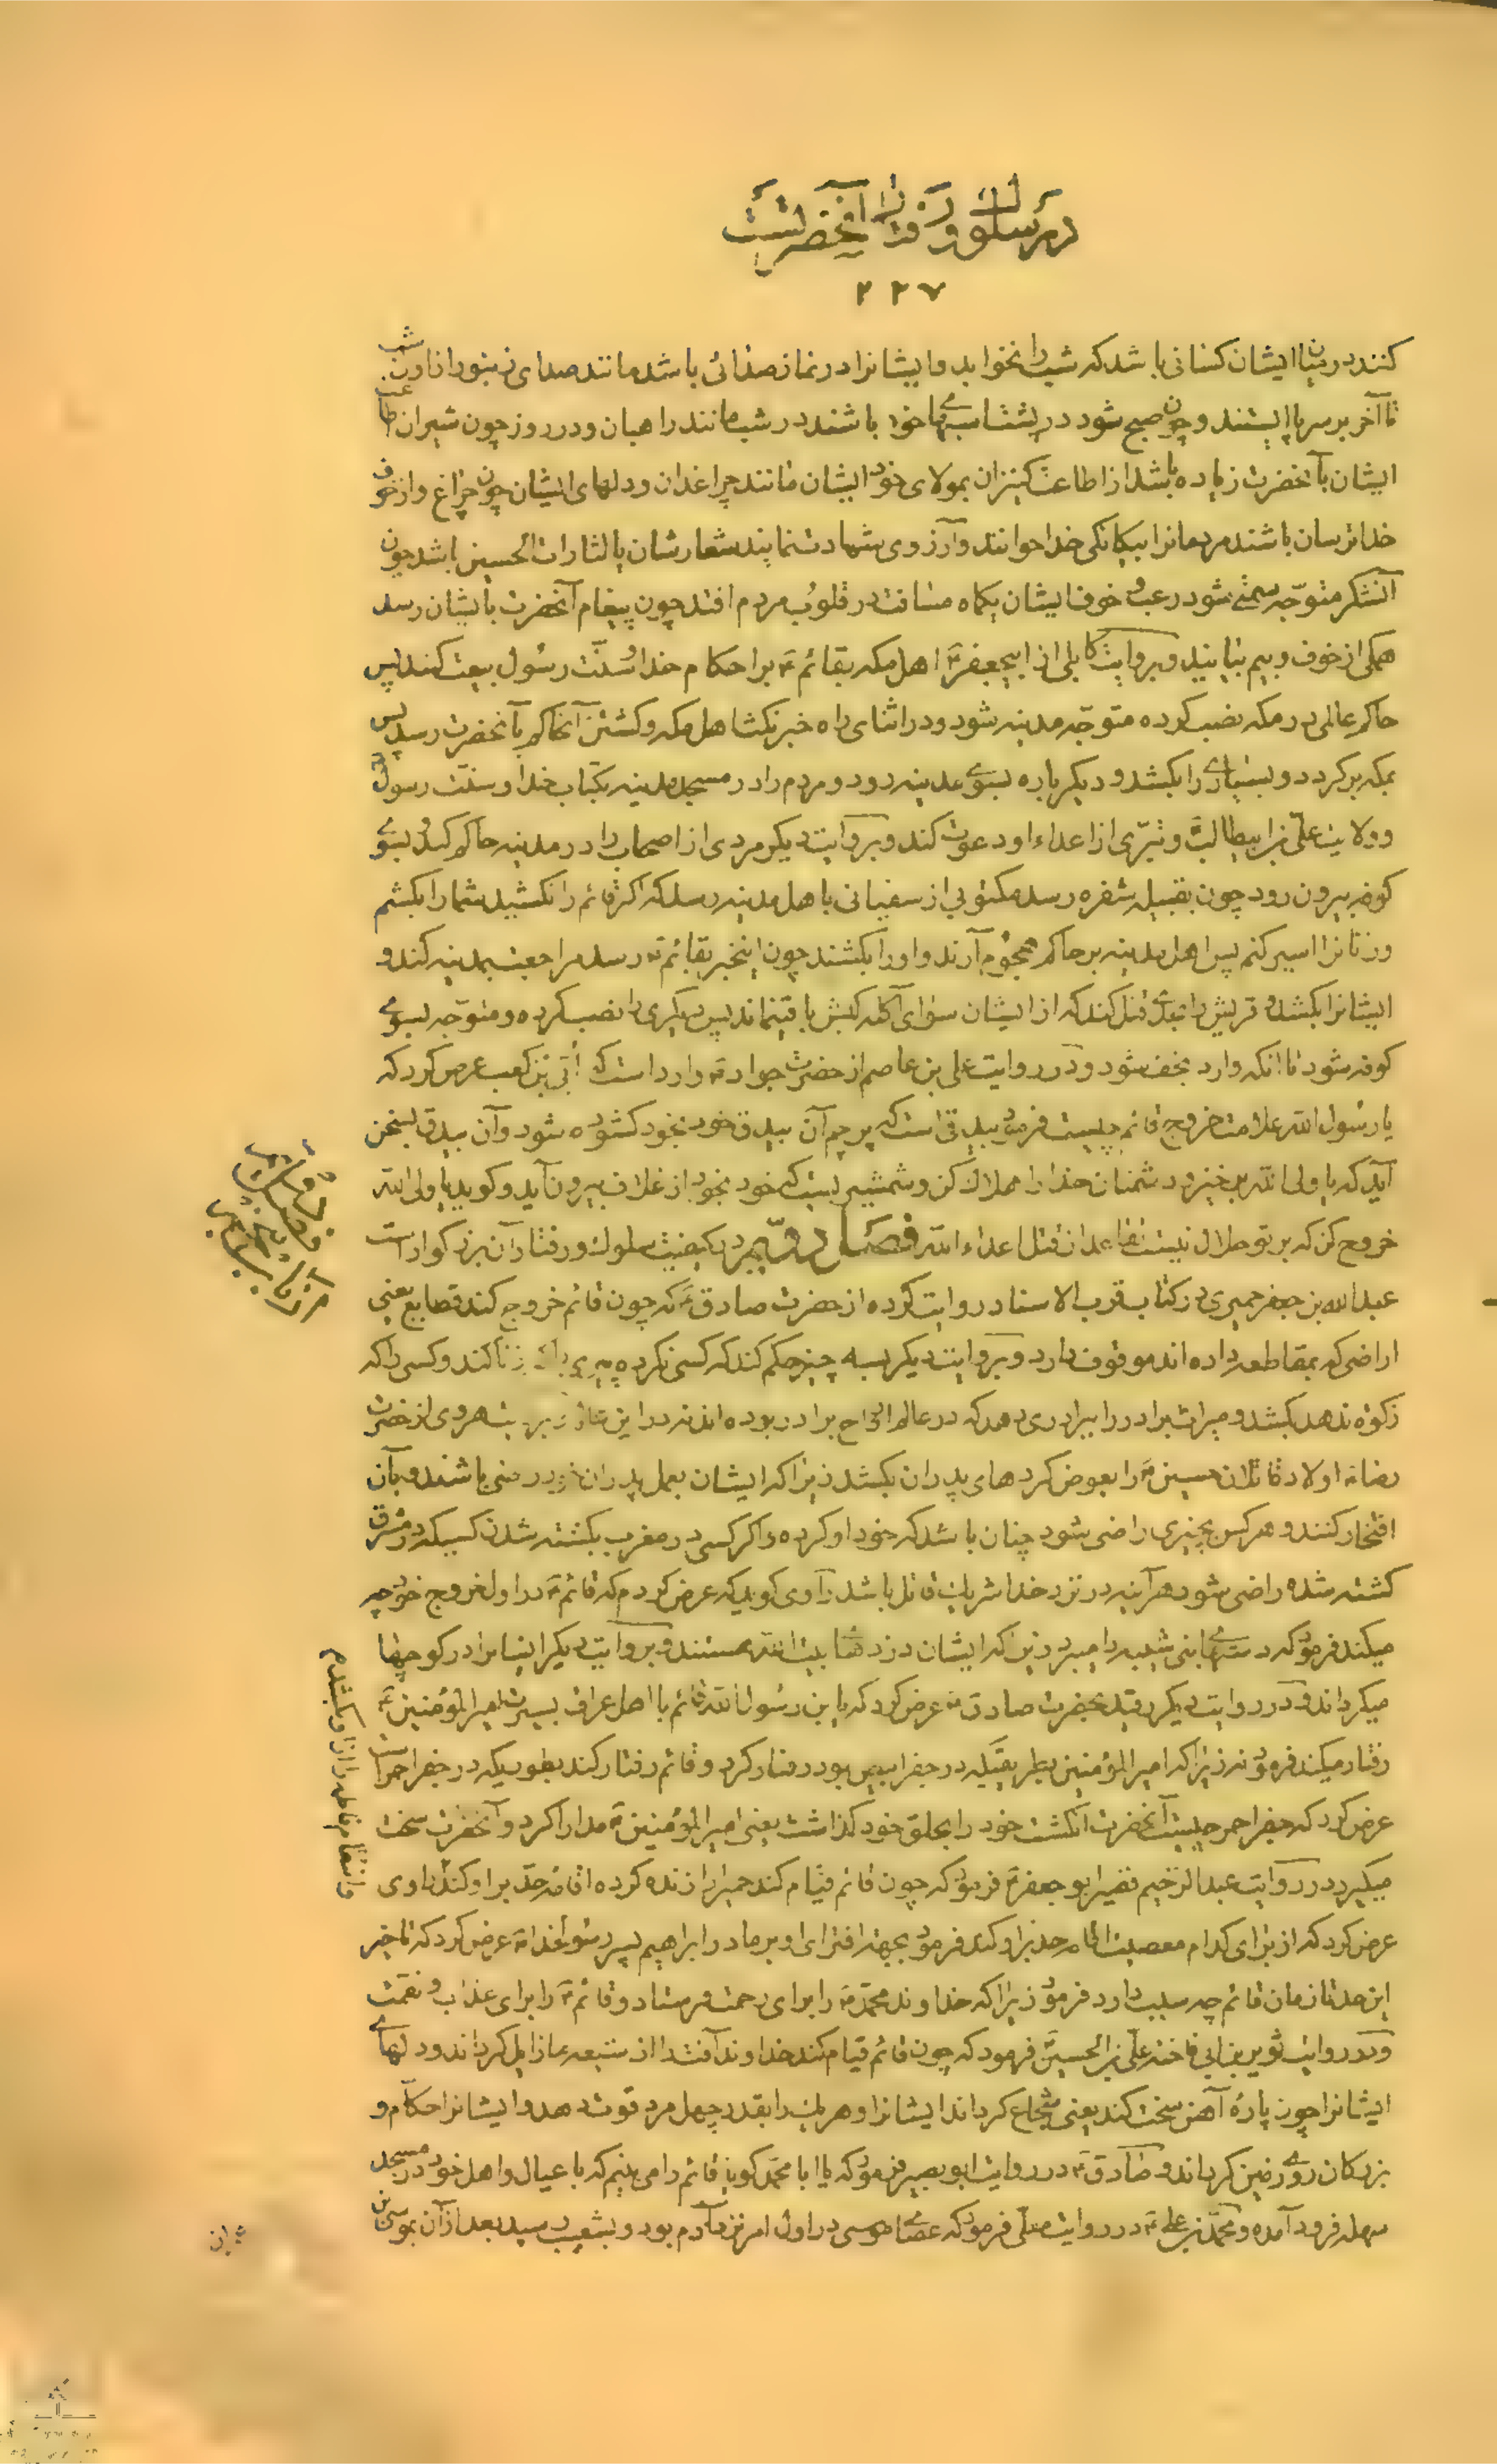 در سلوك و رفتار آنحضرتست
٢٢٧
کنند در میان ایشان کسانی باشد که شب را نخوابد و ایشانرا در نماز صدائی باشد مانند صدای زنبور از اول شب
تا آخر بر سر پا ایستند و چون صبح شود در پشت اسبهای خود باشند در شب مانند راهبان و در روز چون شیران طاعت
ایشان بآنحضرت زیاده باشد از اطاعت کنیزان بمولای خود ایشان مانند چراغدان و دلهای ایشان چون چراغ و از خوف
خدا ترسان باشند مردمانرا بیکانکی خدا خوانند و آرزوی شهادت نمایند شعارشان یالثارات الحسین باشد چون
آنلشکر متوجه سمتی شود رعب و خوف ایشان یکماه مسافت در قلوب مردم افتد چون پیغام آنحضرت بایشان رسد
همکی از خوف و بیم بیایند و بروایت کابلی از ابیجعفرؑ اهل مکه بقائمؑ بر احکام خدا و سنت رسول بیعت کنند پس
حاکم عالمی در مکه نصب کرده متوجه مدینه شود و در اثنای راه خبر نکث اهل مکه و کشتن آنحاکم بآنحضرت رسد پس
بمکه برکردد و بسیاری را بکشد و دیکر باره بسوی مدینه رود و مردم را در مسجد مدینه بکتاب خدا و سنت رسول
و ولایت علی بن ابیطالب و تبری از اعداء او دعوت کند و بروایت دیکر مردی از اصحاب را در مدینه حاکم کند و بسوی
کوفه بیرون رود چون بقبیله شفره رسد مکتوبی از سفیانی باهل مدینه رسد که اکر قائم را نکشید شما را بکشم
و زنانرا اسیر کنم پس اهل مدینه بر حاکم هجوم آرند و او را بکشند چون اینخبر بقائمؑ رسد مراجعت بمدینه کند و
ایشانرا بکشد و قریش را بقدری قتل کند که از ایشان سوای آکله کبش باقی نماند پس دیکری را نصب کرده و متوجه بسوی
کوفه شود تا انکه وارد نجف شود و در روایت علی بن عاصم از حضرت جوادؑ وارد است که ابی بن کعب عرض کرد که
یا رسول الله علامت خروج قائم چیست فرمود بیدقی است که پرچم آن بیدق خود بخود کشوده شود و آن بیدق بسخن
آید که یا ولی الله برخیز و دشمنان خدا را هلاک کن و شمشیریست که خود بخود از غلاف بیرون آید و کوید یا ولی الله
خروج کن که بر تو حلال نیست تقاعد از قتل اعداء الله فصل دوم در کیفیت سلوک و رفتار آن بزرکوار است
عبدالله بن جعفر حمیری در کتاب قرب الاسناد روایت کرده از حضرت صادقؑ که چون قائم خروج کند قطایع یعنی
اراضی که بمقاطعه داده اند موقوف دارد و بروایت دیکر بسه چیز حکم کند که کسی نکرده پیری را که زنا کند و کسی را که
زکوة ندهد بکشد و میراث برادر را ببرادری دهد که در عالم ارواح برادر بوده اند نه در این عالم هروی از حضرت
رضاؑ اولاد قاتلان حسینؑ را بعوض کردهای پدران بکشد زیرا که ایشان بعمل پدران خود راضی باشند و بآن
افتخار کنند و هر کس بچیزی راضی شود چنان باشد که خود او کرده و اکر کسی در مغرب بکشته شدن کسیکه در مشرق
کشته شده راضی شود هرآینه در نزد خدا شریک قاتل باشد راوی کوید که عرض کردم که قائمؑ در اول خروج خود چه
میکند فرمود که دستهای بنی شیبه را میبرد زیرا که ایشان دزدهای بیت الله هستند و بروایت دیکر ایشانرا در کوچها
میکرداند و در روایت دیکر رفید بحضرت صادقؑ عرض کرد که یا بن رسول الله قائم با اهل عراق بسیرت امیر المؤمنینؑ
رفتار میکند فرمود نه زیرا که امیر المؤمنین بطریقیکه در جفر ابیض بود رفتار کرد و قائم رفتار کند بطوریکه در جفر احمر است
عرض کرد که جفر احمر چیست آنحضرت انکشت خود را بحلق خود کذاشت یعنی امیر المؤمنینؑ مدارا کرد و آنحضرت سخت
میکیرد در روایت عبدالرحیم قصیر ابو جعفرؑ فرمود که چون قائم قیام کند حمیرا را زنده کرده اقامه حد بر او کند راوی
عرض کرد که از برای کدام معصیت اقامه حد بر او کند فرمود بجهة افترای او بر مادر ابراهیم پسر رسول خداؐ عرض کرد که تاخیر
این حد تا زمان قائم چه سبب دارد فرمود زیرا که خداوند محمدؐ را برای رحمت فرستاد و قائمؑ را برای عذاب و نقمت
و در روایت ثویر بن ابی فاخته علی بن الحسینؑ فرمود که چون قائم قیام کند خداوند آفت را از شیعه ما زایل کرداند و دلهای
ایشانرا چون پارۀ آهن سخت کند یعنی شجاع کرداند ایشانرا و هر یک را بقدر چهل مرد قوت دهد و ایشانرا حکام و
بزرکان روی زمین کرداند و صادقؑ در روایت ابو بصیر فرمود که یا ابا محمد کویا قائم را می بینم که با عیال و اهل خود در مسجد
سهله فرود آمده و محمد بن علیؑ در روایت معلی فرمود که عصای موسی در اول امر نزد آدم بود و بشعیب رسید بعد از آن بموسی بن
و انتقام فاطمه را از او بکشد م